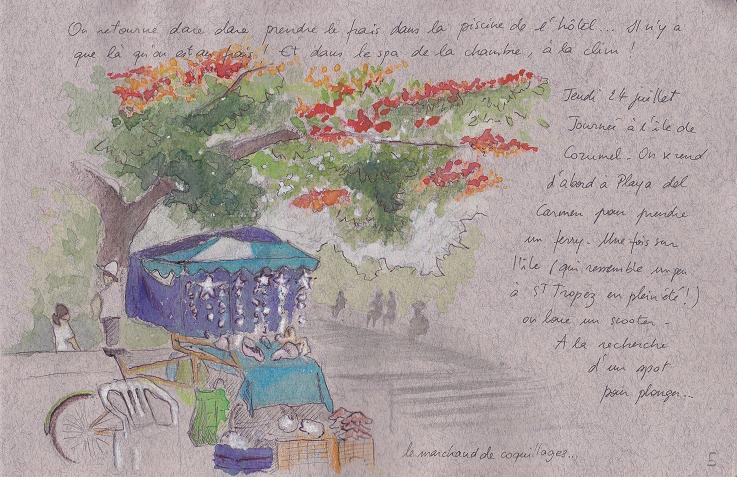 On retourne dare dare prendre le frais dans la piscine de l'hôtel... Il n'y a
que là qu'on est au frais ! Et dans le spa de la chambre, à la clim !
Jeudi 24 juillet
Journée à l'île de
Cozumel. On x rend
d'abord à Playa del
Carmen pour prendre
un ferry. Une fois sur
l'île (qui ressemble un peu
à St Tropez en plein été !)
on loue un scooter.
A la recherche
d'un spot
pour plonger...
le marchand de coquillages...
5